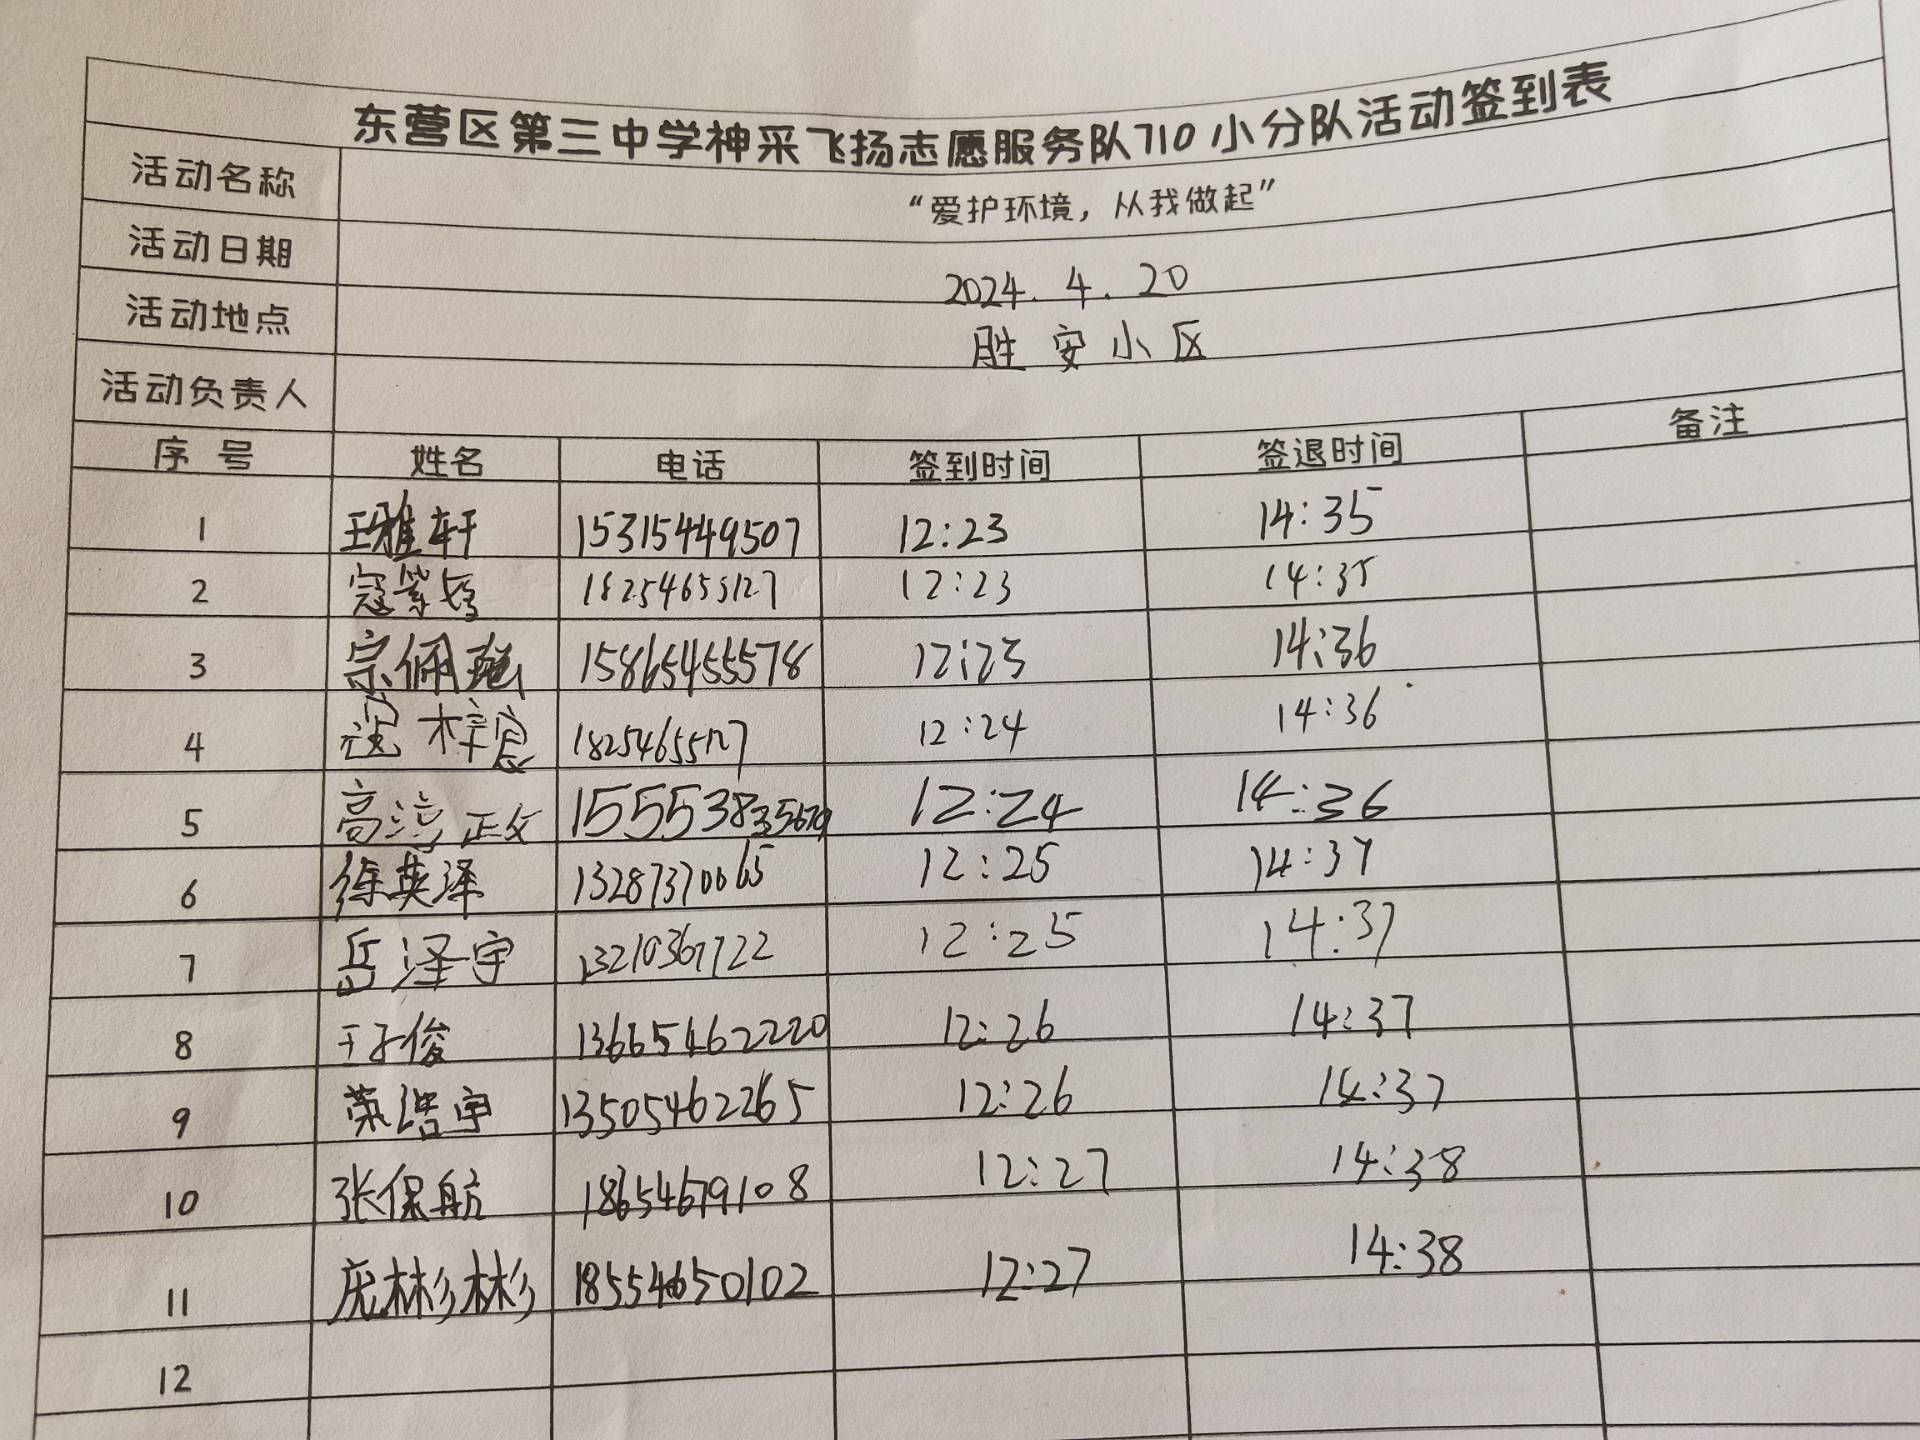 东营区第三中学神采飞扬志愿服务队710小分队活动签到表
活动名称 “爱护环境，从我做起”
活动日期 2024.4.20
活动地点 胜安小区
活动负责人
序号 姓名 电话 签到时间 签退时间 备注
1 王雅轩 15315449507 12:23 14:35
2 寇紫 18254655127 12:23 14:35
3 宗佩 15865455578 12:23 14:36
4 寇梓宸 18254655127 12:24 14:36
5 高淳正文 15553835679 12:24 14:36
6 徐英泽 13287370065 12:25 14:37
7 岳泽宇 13210367722 12:25 14:37
8 王子俊 13665462220 12:26 14:37
9 荣浩宇 13505462265 12:26 14:37
10 张保航 18654679108 12:27 14:38
11 庞彬彬 18554650102 12:27 14:38
12